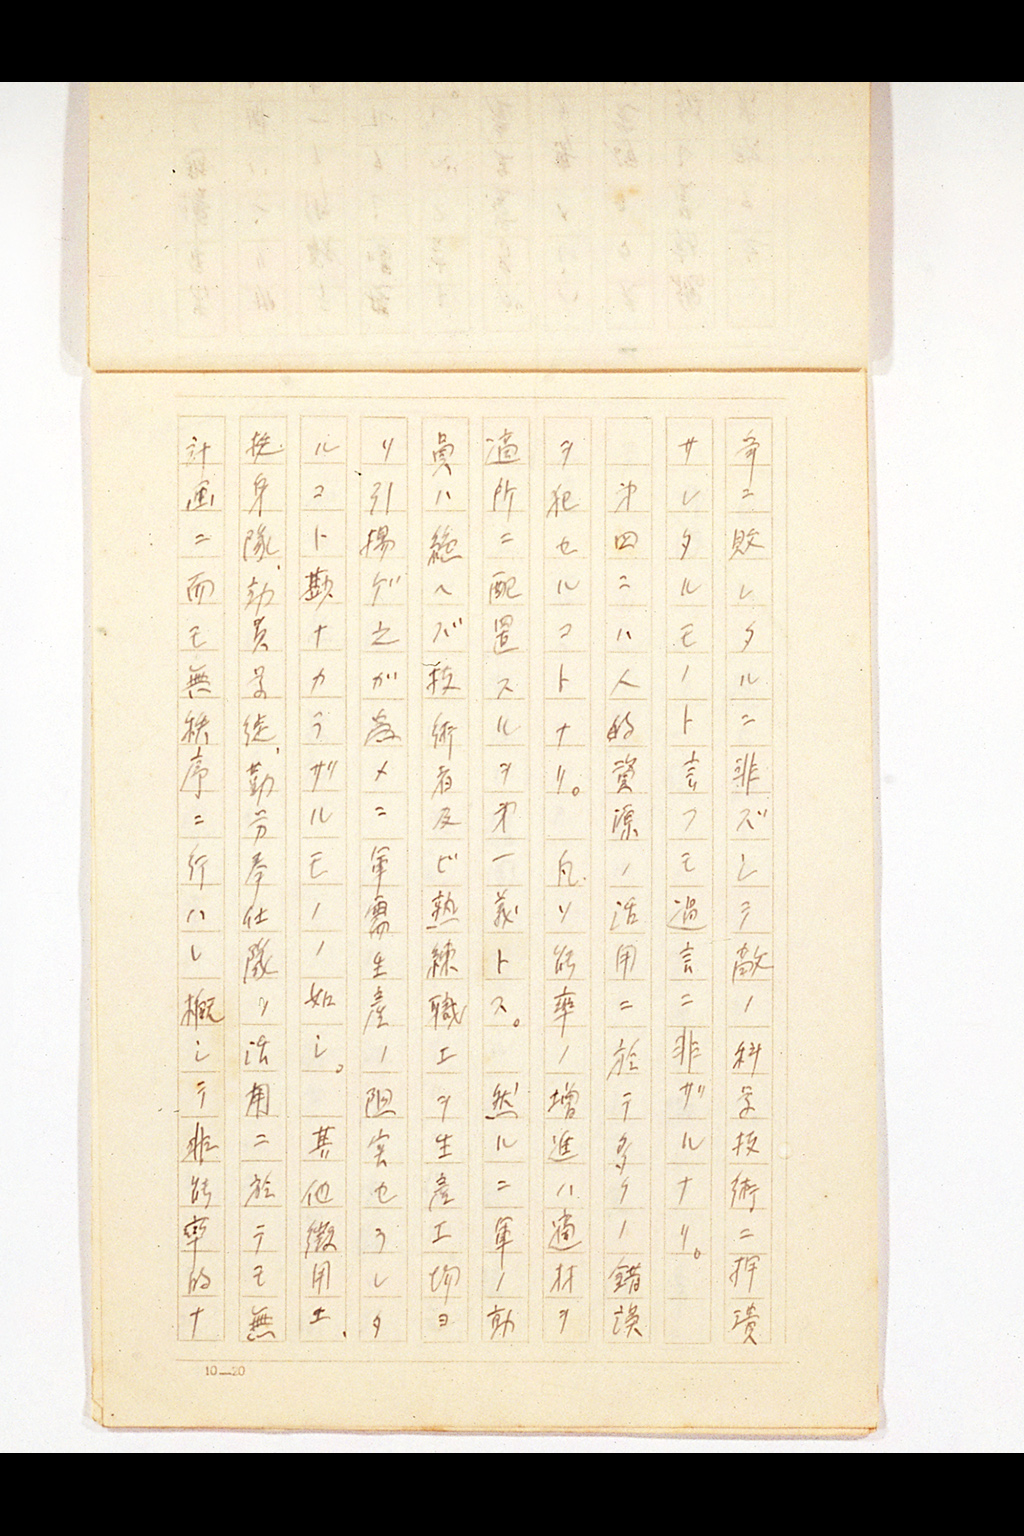 争ニ敗レタルニ非ズシテ敵ノ科学技術ニ押潰
サレタルモノト言フモ過言ニ非ザルナリ。
㐧四ニハ人的資源ノ活用ニ於テ多クノ錯誤
ヲ犯セルコトナリ。凡ソ能率ノ増進ハ適材ヲ
適所ニ配置スルヲ㐧一義トス。然ルニ軍ノ動
員ハ絶ヘズ技術者及ビ熟練職工ヲ生産工場ヨ
リ引揚ゲ之ガ為メニ軍需生産ノ阻害セラレタ
ルコト尠ナカラザルモノノ如シ。其他徴用工、
挺身隊、動員学徒、勤労奉仕隊ノ活用ニ於テモ無
計画ニ而モ無秩序ニ行ハレ概シテ非能率的ナ
10—20